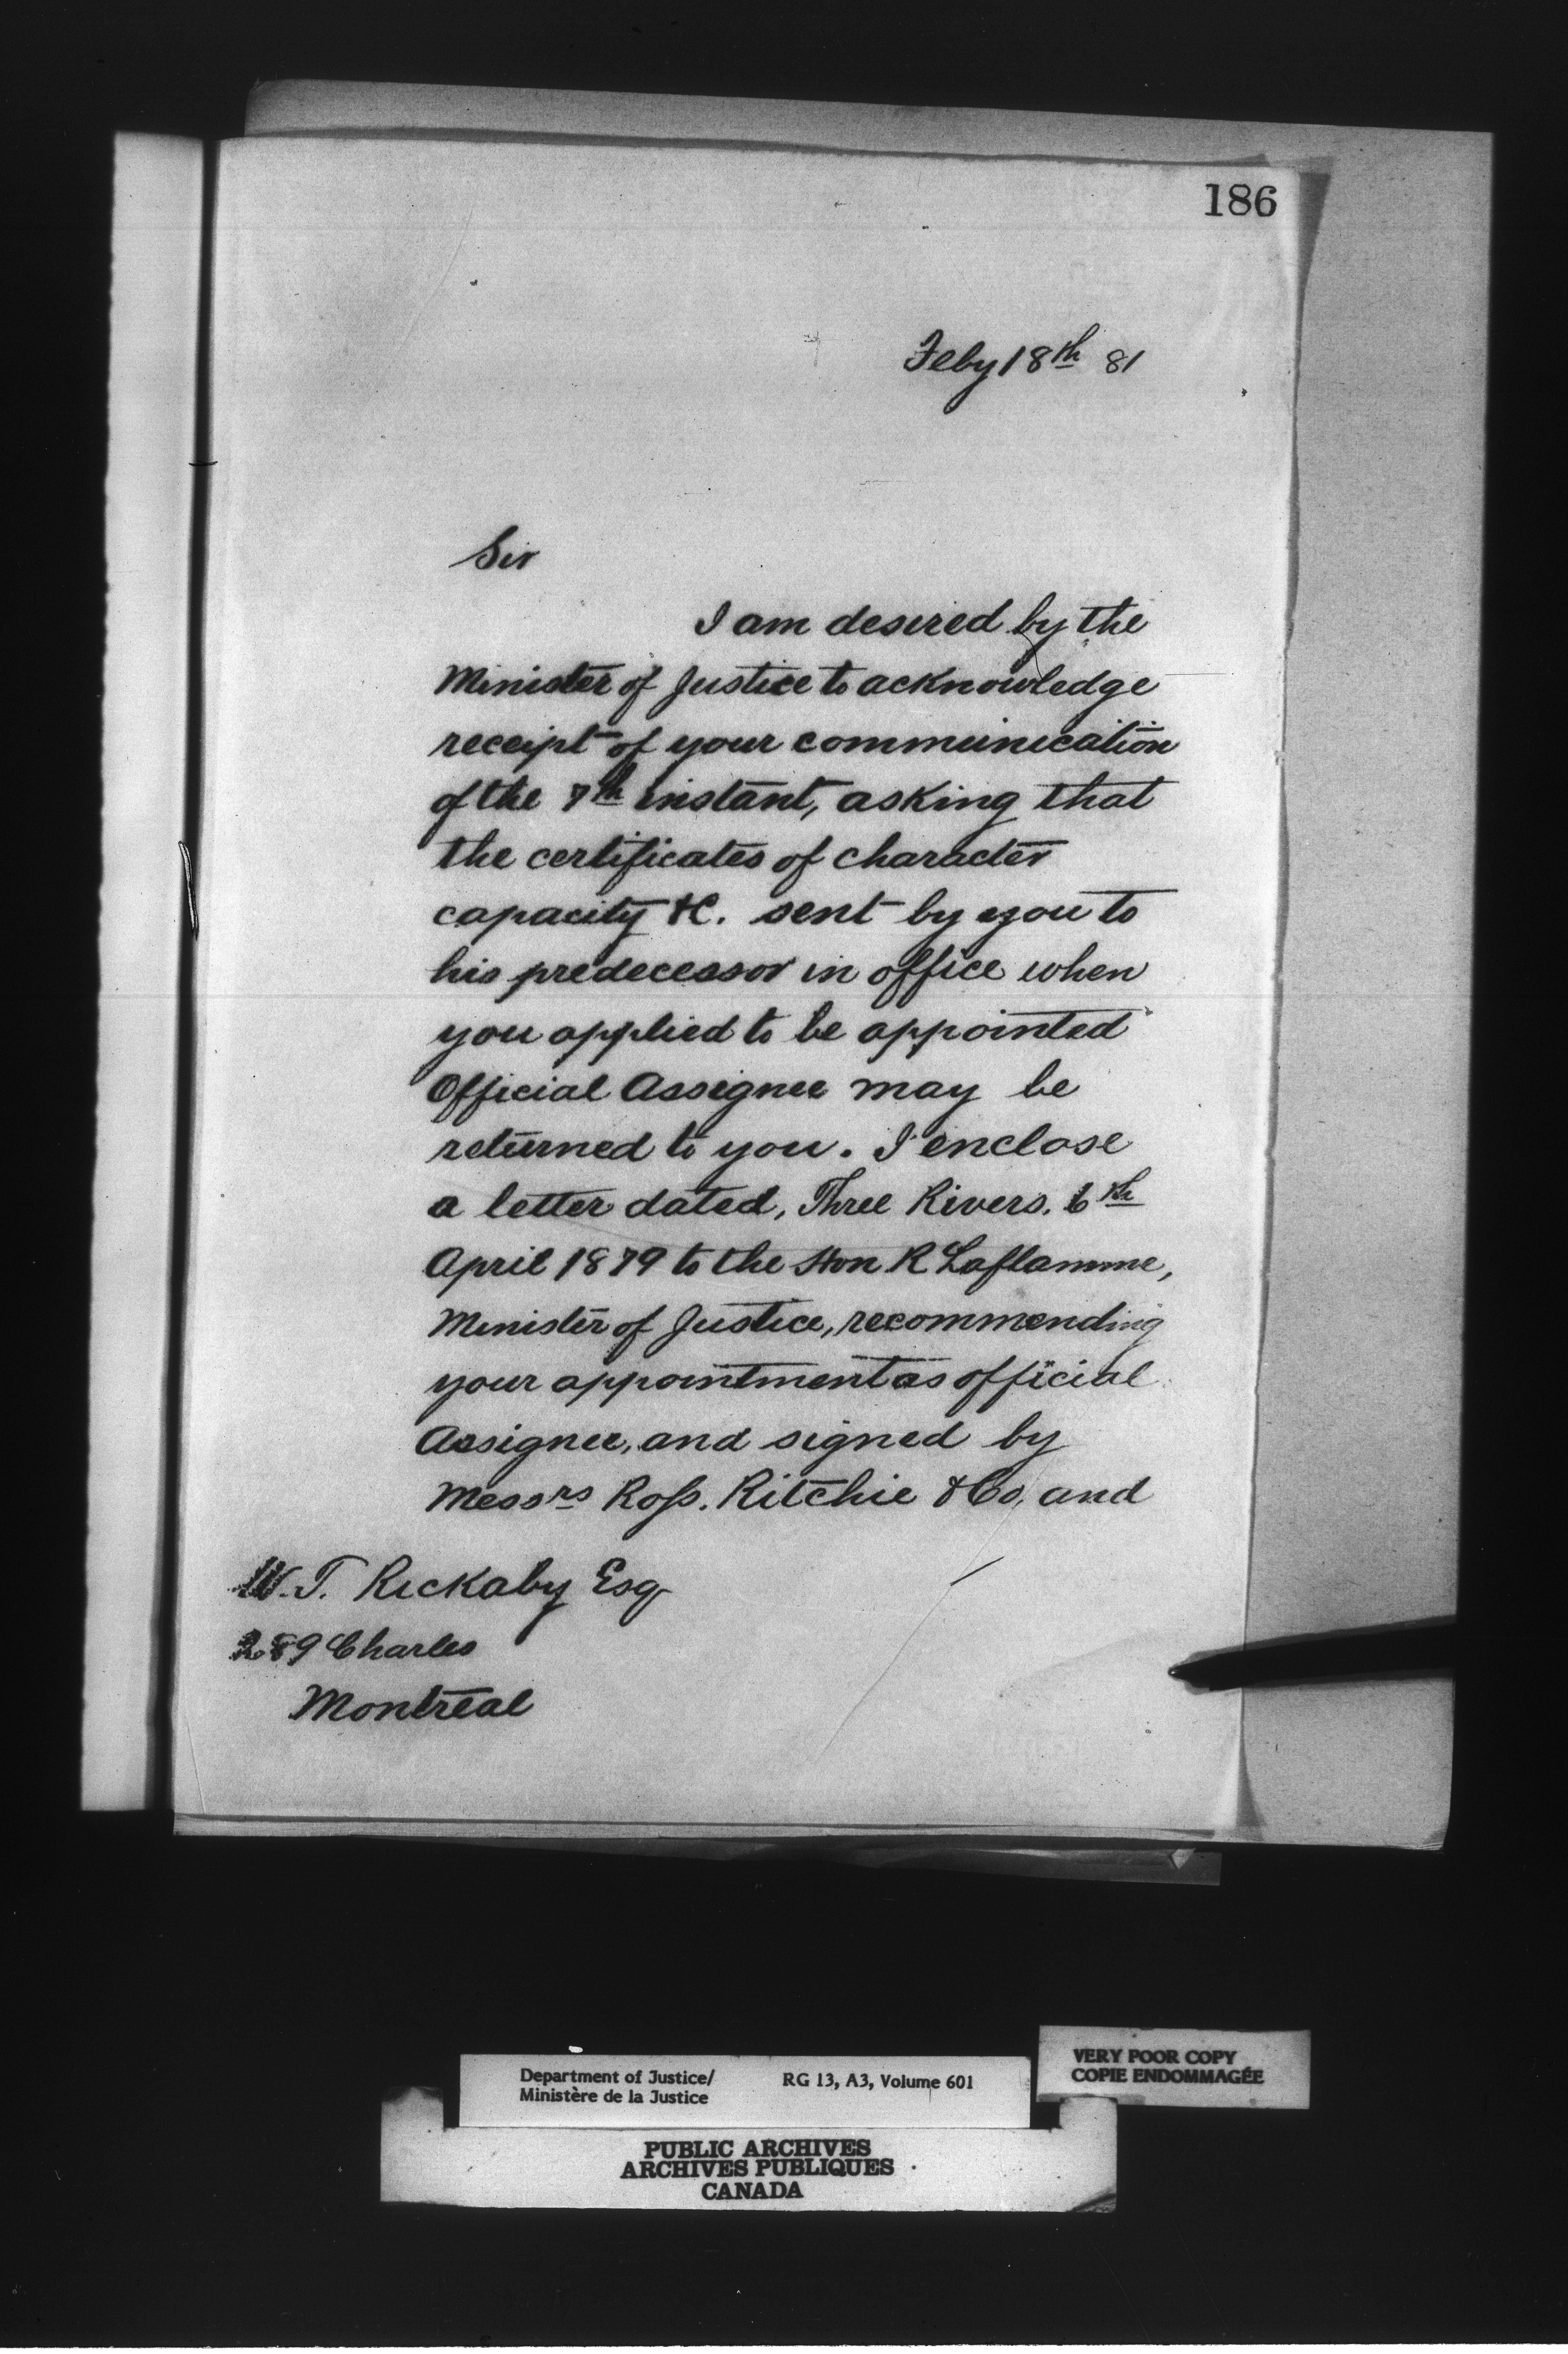 186
Feby 18th 81
Sir
I am desired by the
Minister of Justice to acknowledge
receipt of your communication
of the 7th instant, asking that
the certificates of character
capacity &c. sent by you to
his predecessor in office when
you applied to be appointed
Official Assignee may be
returned to you. I enclose
a letter dated, Three Rivers. 6th
April 1879 to the Hon R Laflamme,
Minister of Justice, recommending
your appointment as official
Assignee, and signed by
Messrs Ross. Ritchie & Co, and
W. T. Rickaby Esq
289 Charles
Montreal
Department of Justice/ RG 13, A3, Volume 601
Ministère de la Justice
VERY POOR COPY
COPIE ENDOMMAGÉE
PUBLIC ARCHIVES
ARCHIVES PUBLIQUES
CANADA